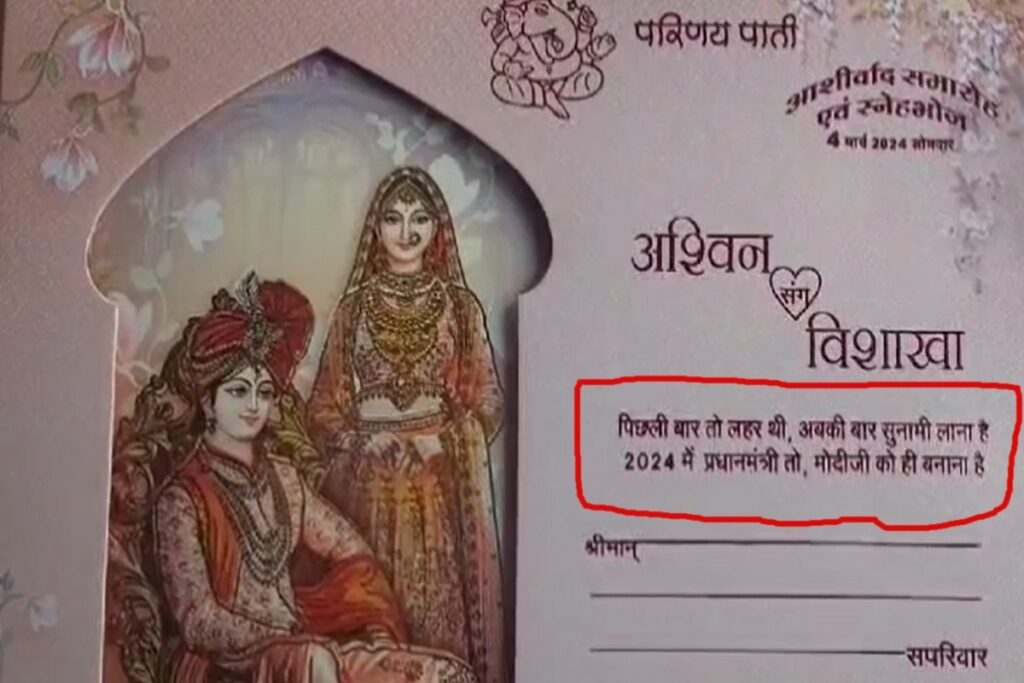 परिणय पाती
आशीर्वाद समारोह
एवं स्नेहभोज
4 मार्च 2024 सोमवार
अश्विन
संग
विशाखा
पिछली बार तो लहर थी, अबकी बार सुनामी लाना है
2024 में प्रधानमंत्री तो, मोदीजी को ही बनाना है
श्रीमान्
सपरिवार